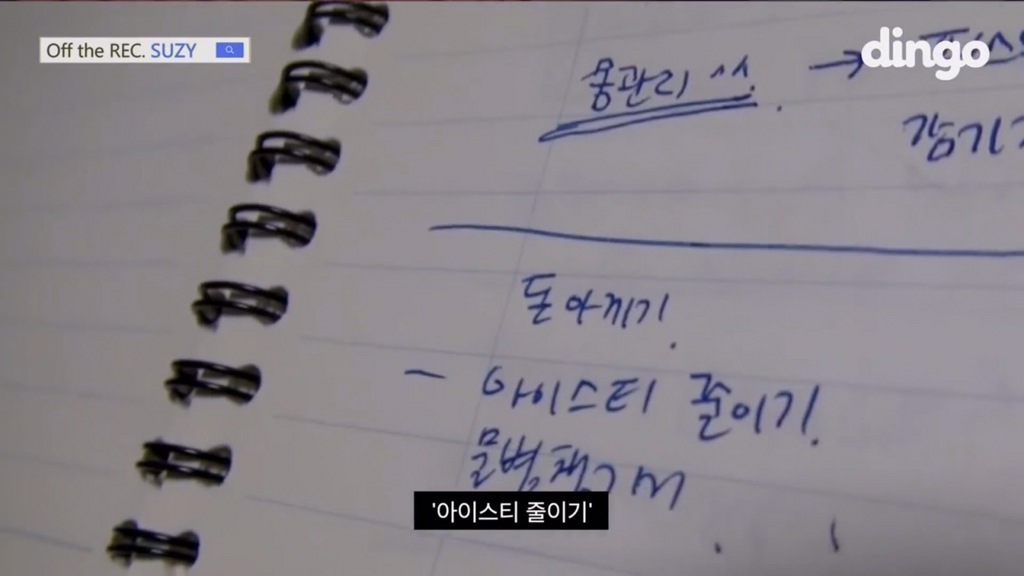 Off the REC. SUZY
dingo
몸관리 ^^. →
감기
돈 아끼기.
- 아이스티 줄이기.
물병챙겨서
'아이스티 줄이기'